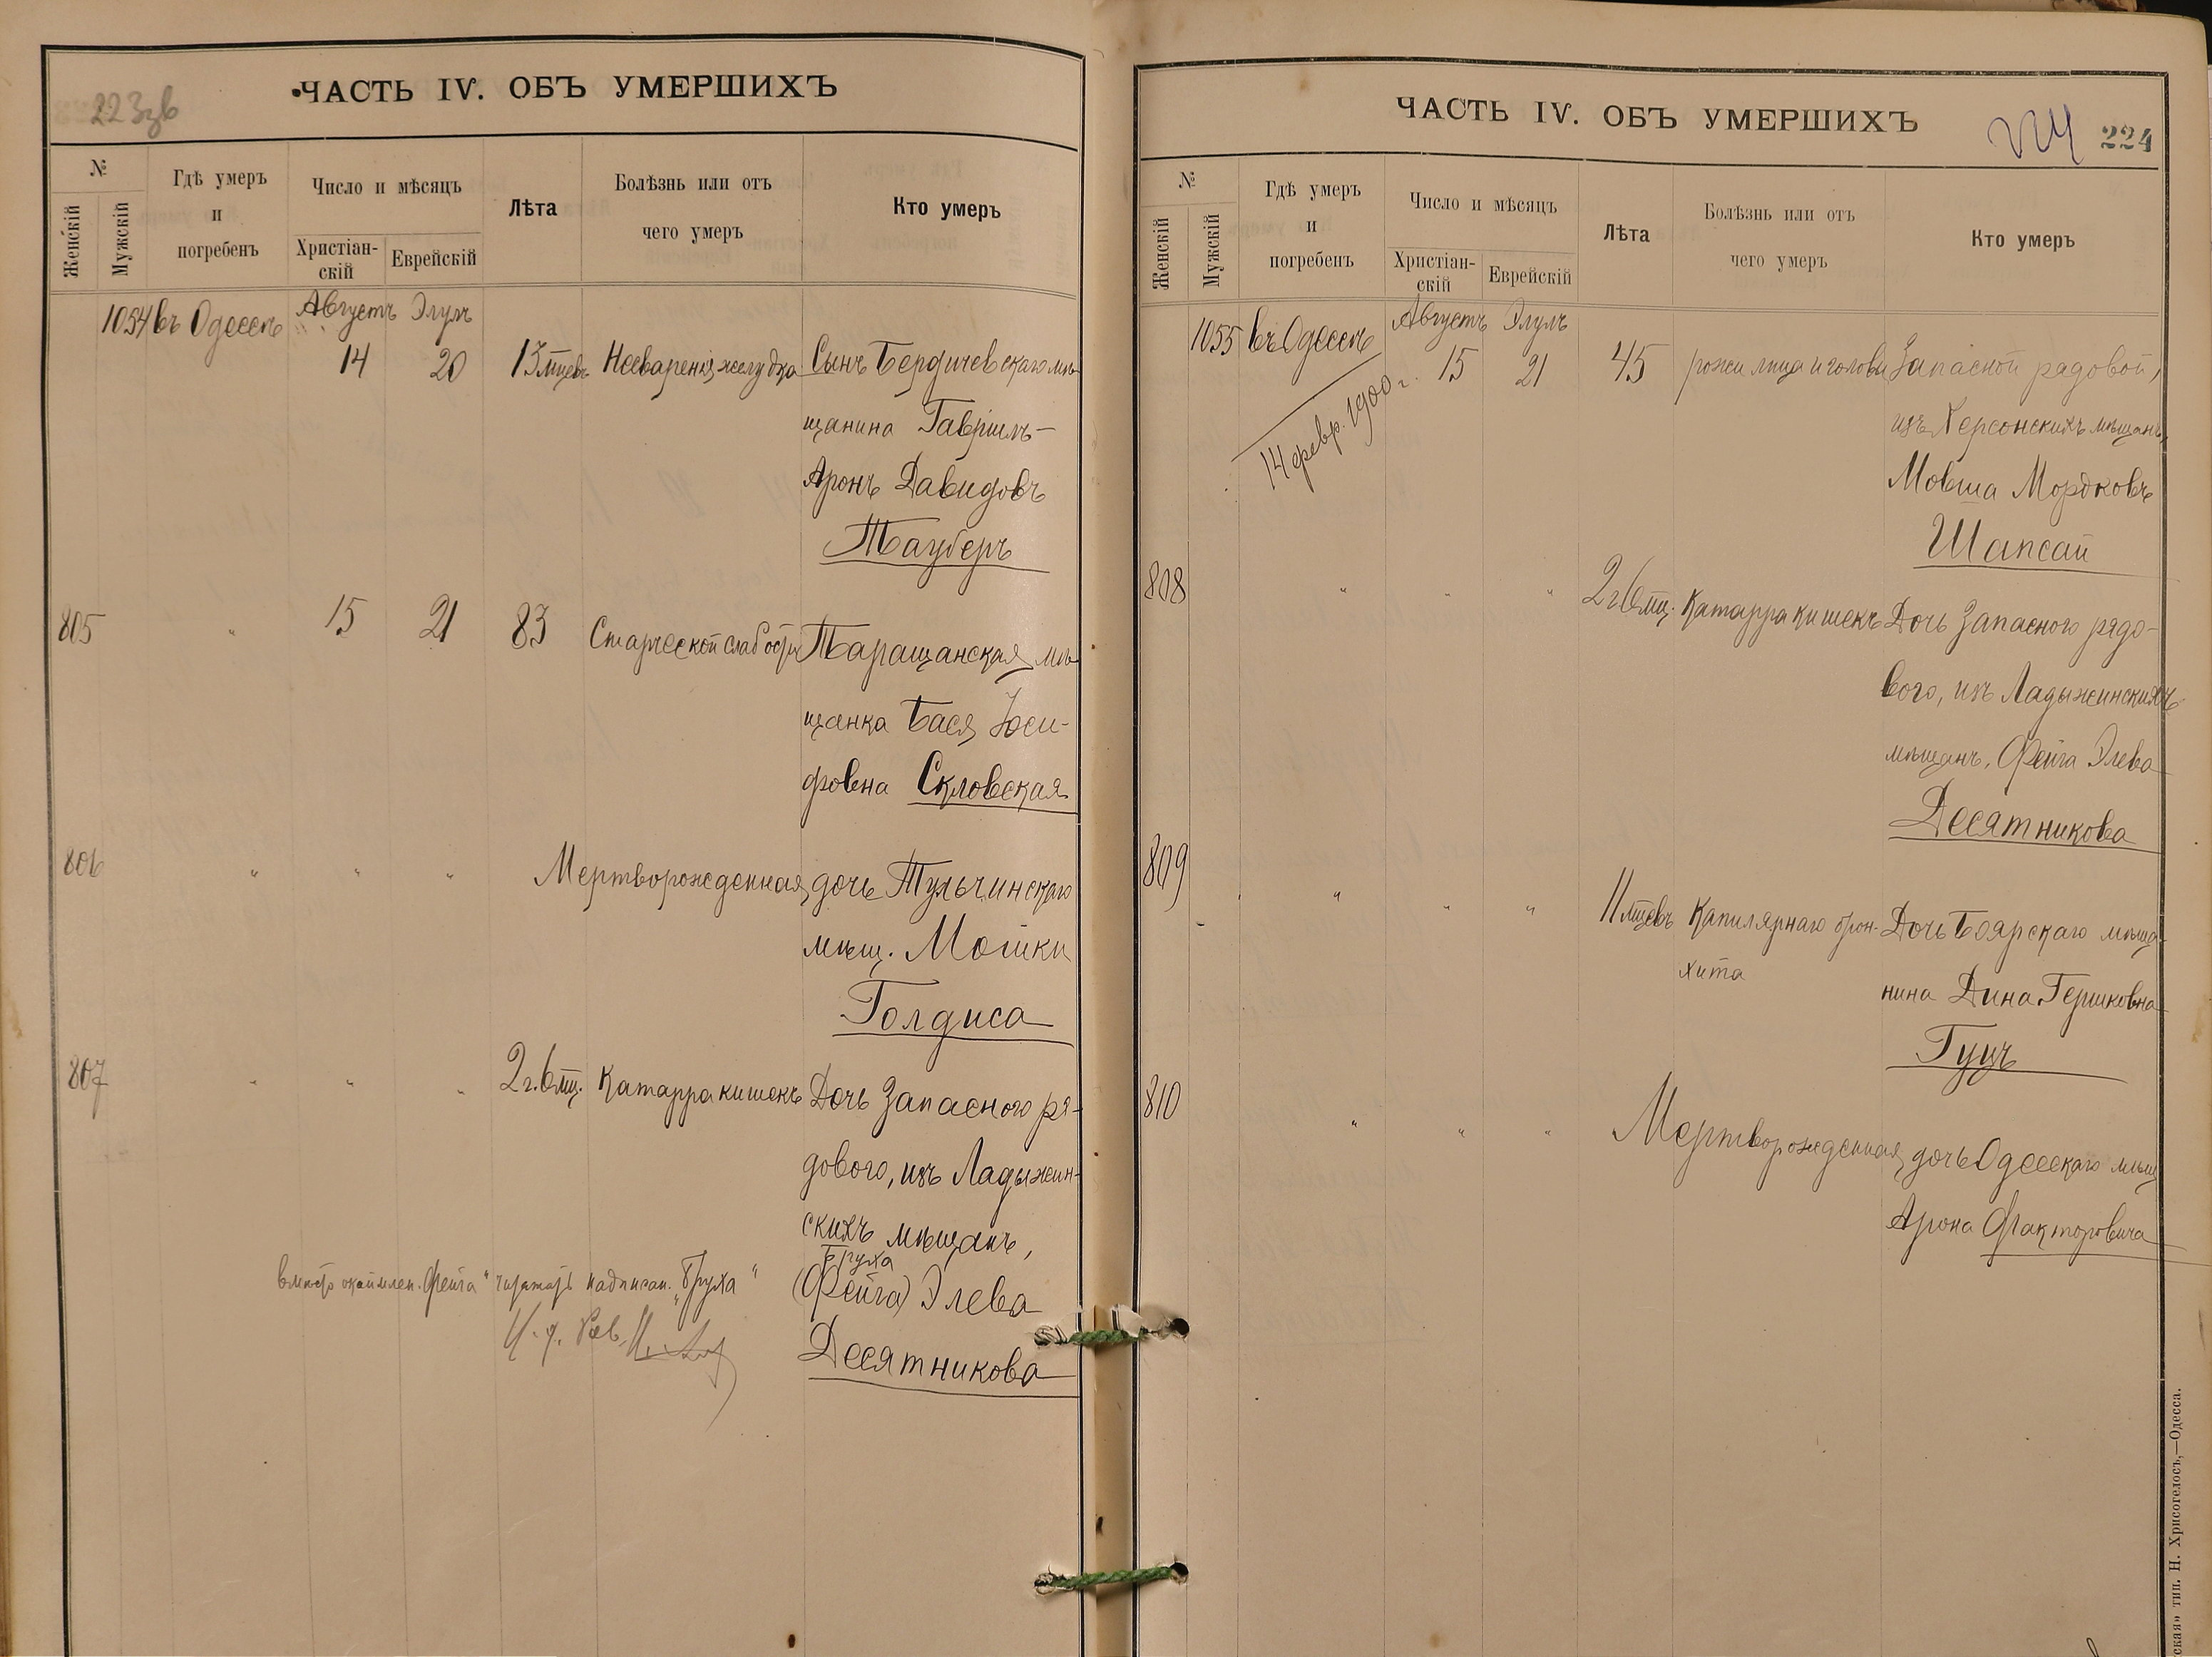 223зв
ЧАСТЬ IV. ОБЪ УМЕРШИХЪ
№
Женскій
Мужскій
Гдѣ умеръ
и
погребенъ
Число и мѣсяцъ
Христіан-
скій
Еврейскій
Лѣта
Болѣзнь или отъ
чего умеръ
Кто умеръ
1054 въ Одессѣ Августъ Элулъ
14 20 13 мцевъ Несваренія желудка Сынъ Бердичевскаго мѣ-
щанина Гавріилъ-
Аронъ Давидовъ
Тауберъ
805 " 15 21 83 Старческой слабости Таращанская мѣ-
щанка Бася Іоси-
фовна Скловская
806 " " " Мертворожденная дочь Тульчинскаго
мѣщ. Мошки
Голдиса
807 " " " 2 г. 6 мц. Катарра кишекъ Дочь запасного ря-
дового, изъ Ладыжин-
скихъ мѣщанъ,
Бруха
(Фейга) Элева
Десятникова
вмѣсто окаймлен. Фейга" читать надписан. "Бруха"
И. д. Рав.
ЧАСТЬ IV. ОБЪ УМЕРШИХЪ
224
224
№
Женскій
Мужскій
Гдѣ умеръ
и
погребенъ
Число и мѣсяцъ
Христіан-
скій
Еврейскій
Лѣта
Болѣзнь или отъ
чего умеръ
Кто умеръ
1055 въ Одессѣ Августъ Элулъ
15 21 45 рожи лица и головы Запасной рядовой,
изъ Херсонскихъ мѣщанъ,
Мовша Мордковъ
Шапсай
14 февр. 1900 г.
808 " " " 2 г. 6 мц. Катарра кишекъ Дочь запасного рядо-
вого, изъ Ладыжинскихъ
мѣщанъ, Фейга Элева
Десятникова
809 " " " 11 мцевъ Капилярнаго брон- Дочь Боярскаго мѣща-
хита
нина Дина Гершковна
Гуцъ
810 " " " Мертворожденная дочь Одесскаго мѣщ
Арона Факторовича
ская» тип. Н. Хрисогелосъ,—Одесса.